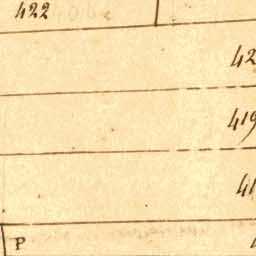 422
42
419
41
P